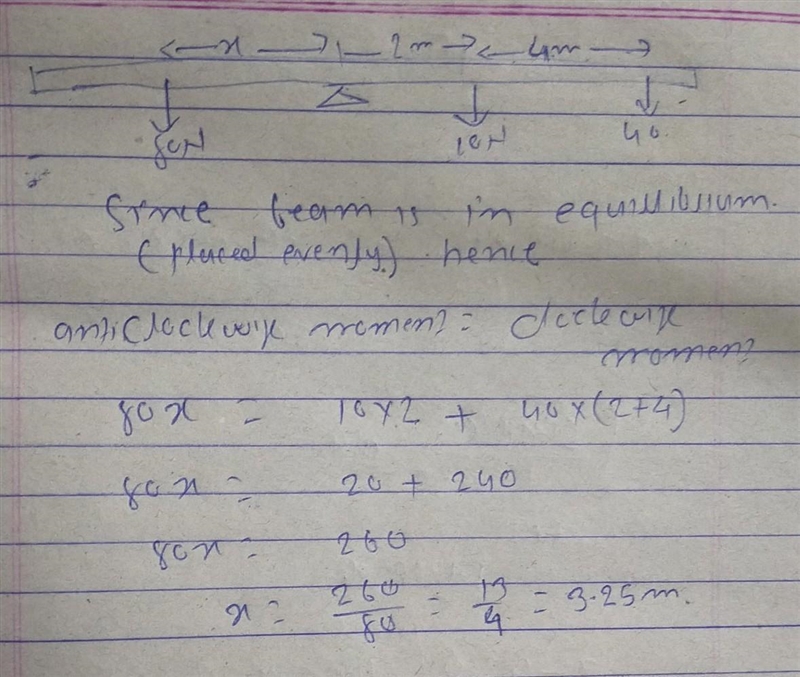 x 2m 4m
80N 10N 40
Since beam is in equillibrium.
(placed evenly.) hence
anticlockwise moment = clockwise
moment
80x = 10×2 + 40×(2+4)
80x = 20 + 240
80x = 260
x = 260/80 = 13/4 = 3.25m.